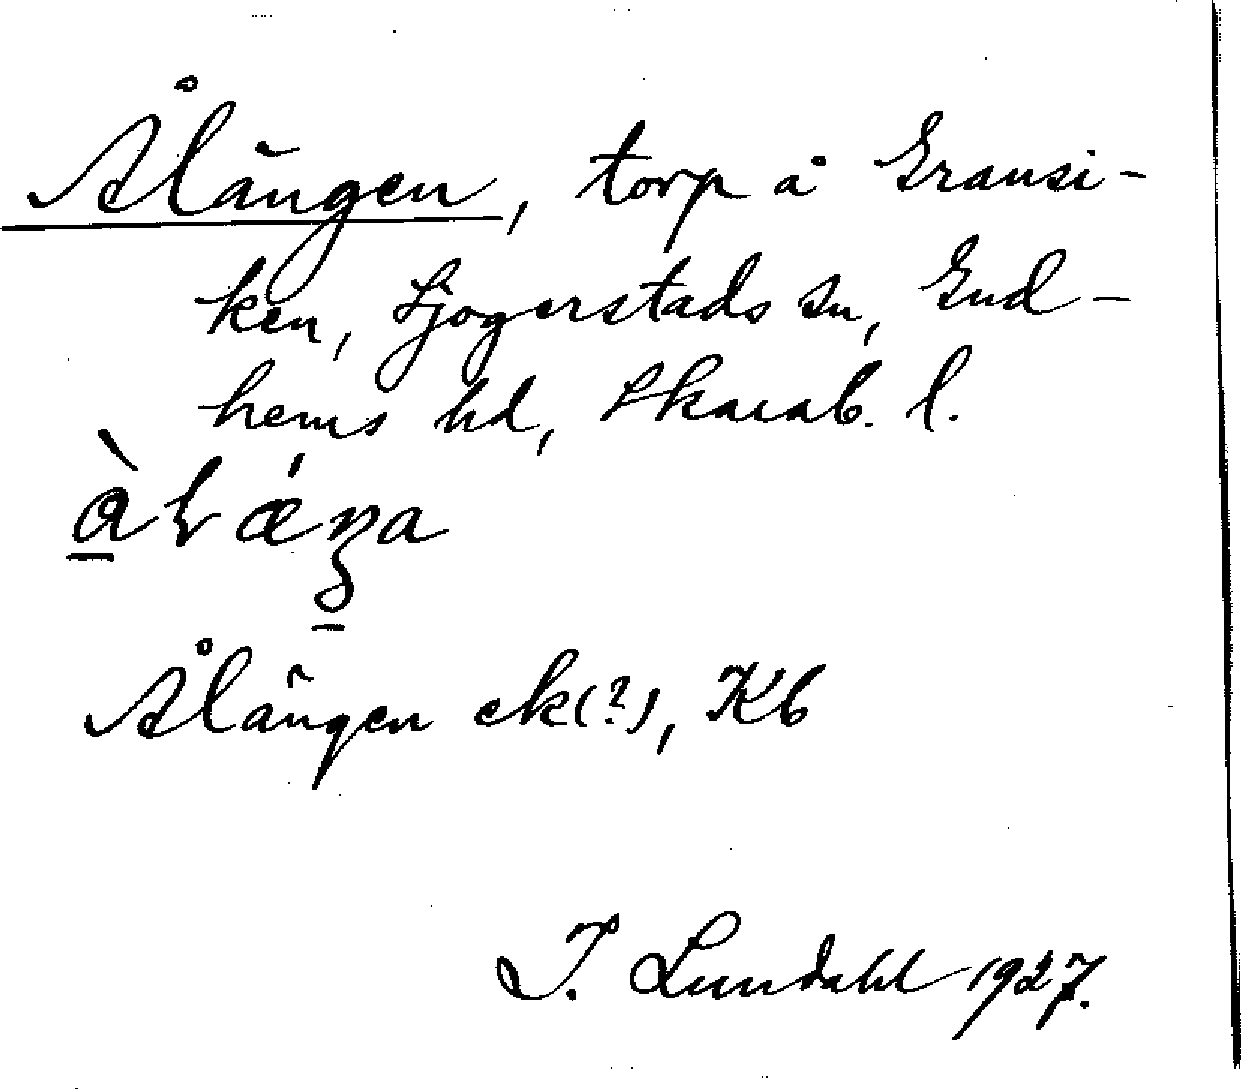 Ålängen, torp å Gransi-
ken, Sjogerstads sn, Gud-
hems hd, Skarab. l.
Ålängen ek(?), Kb
I. Lundahl 1927.